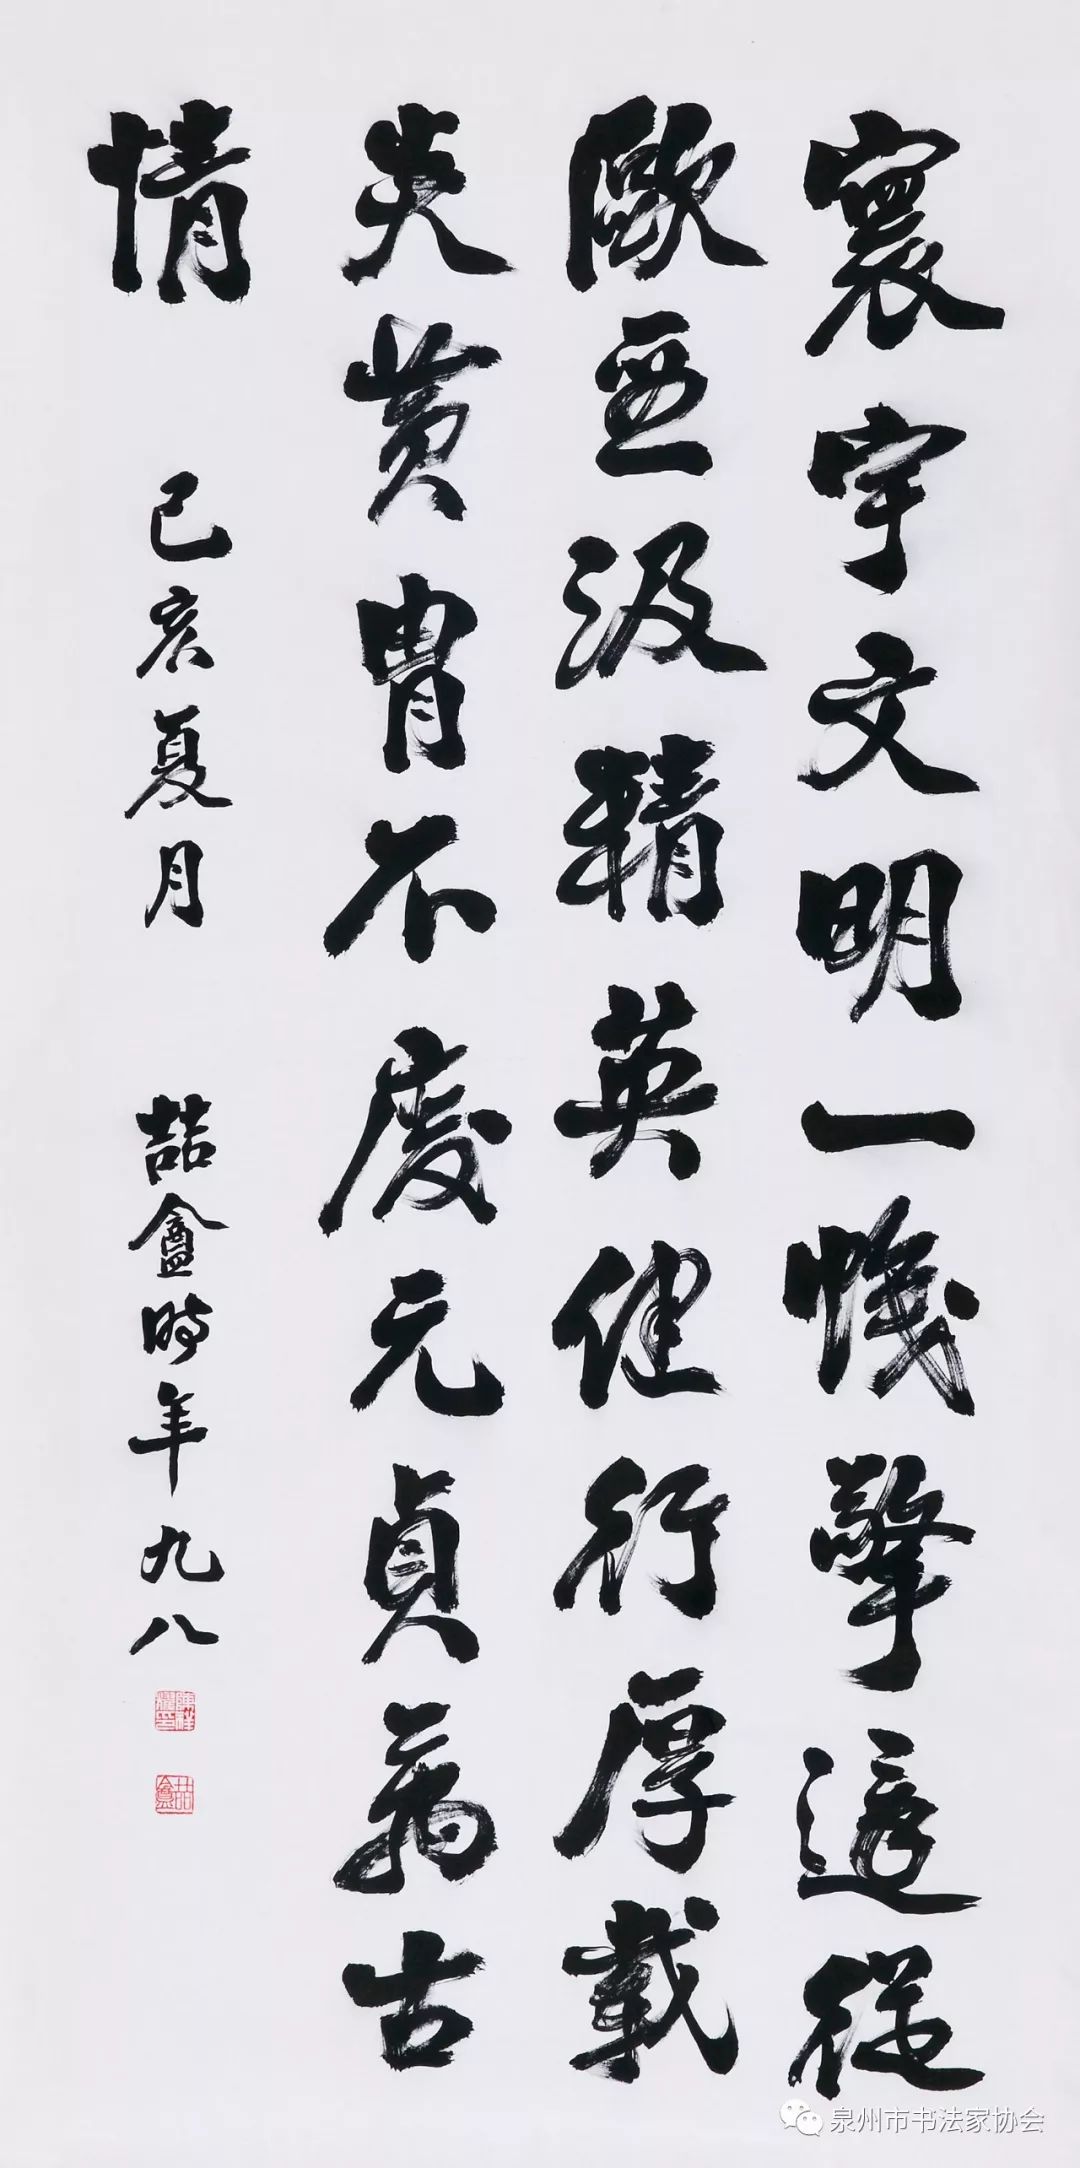 寰宇文明一幟擎遥從
歐亞汲精英健行厚載
炎黄胄不虔元貞萬古
情
己亥夏月
喆盦時年九八
喆盦
泉州市书法家协会